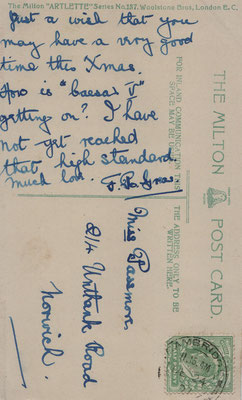 The Milton "ARTLETTE" Series No. 187. Woolstone Bros., London E.C.
Just a wish that you
may have a very good
time this Xmas.
How is "Caesar V"
getting on? I have
not yet reached
that high standard
Much love.
THE MILTON POST CARD.
FOR INLAND COMMUNICATION THIS
SPACE MAY BE
THE ADDRESS ONLY TO BE
WRITTEN HERE.
Miss Passmore
Unthank Road
Norwich.